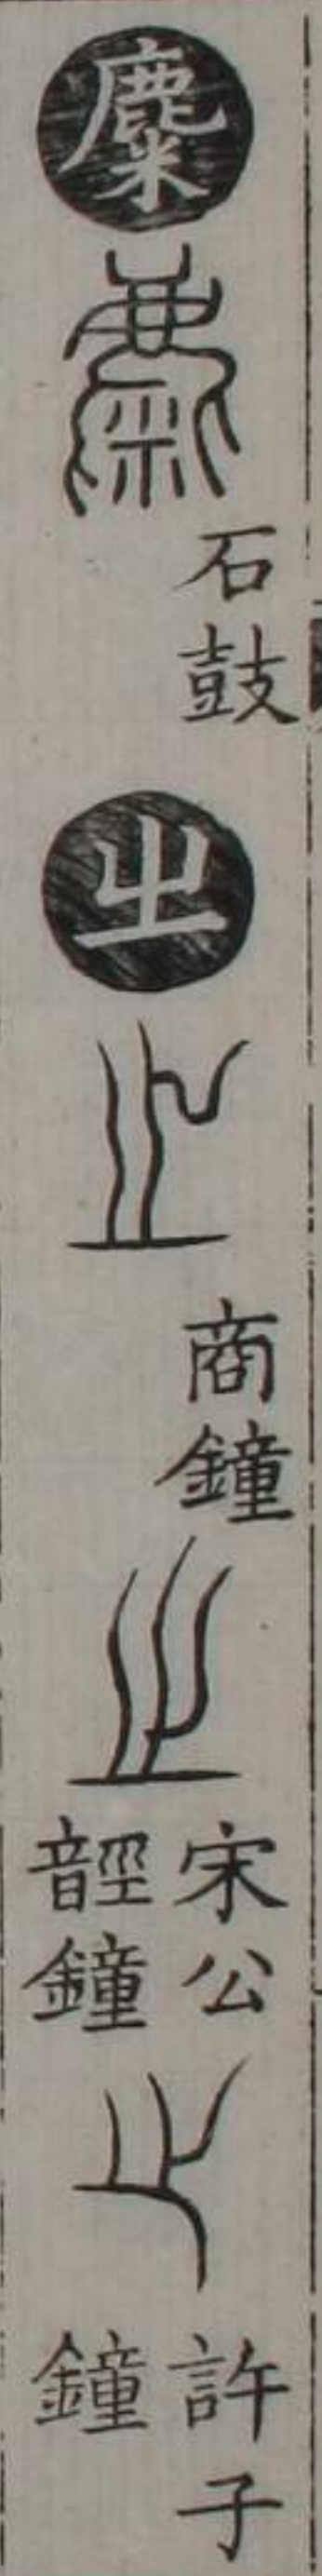 麋
石鼓
㞢
商鐘
宋公
䪫鐘
許子
鐘